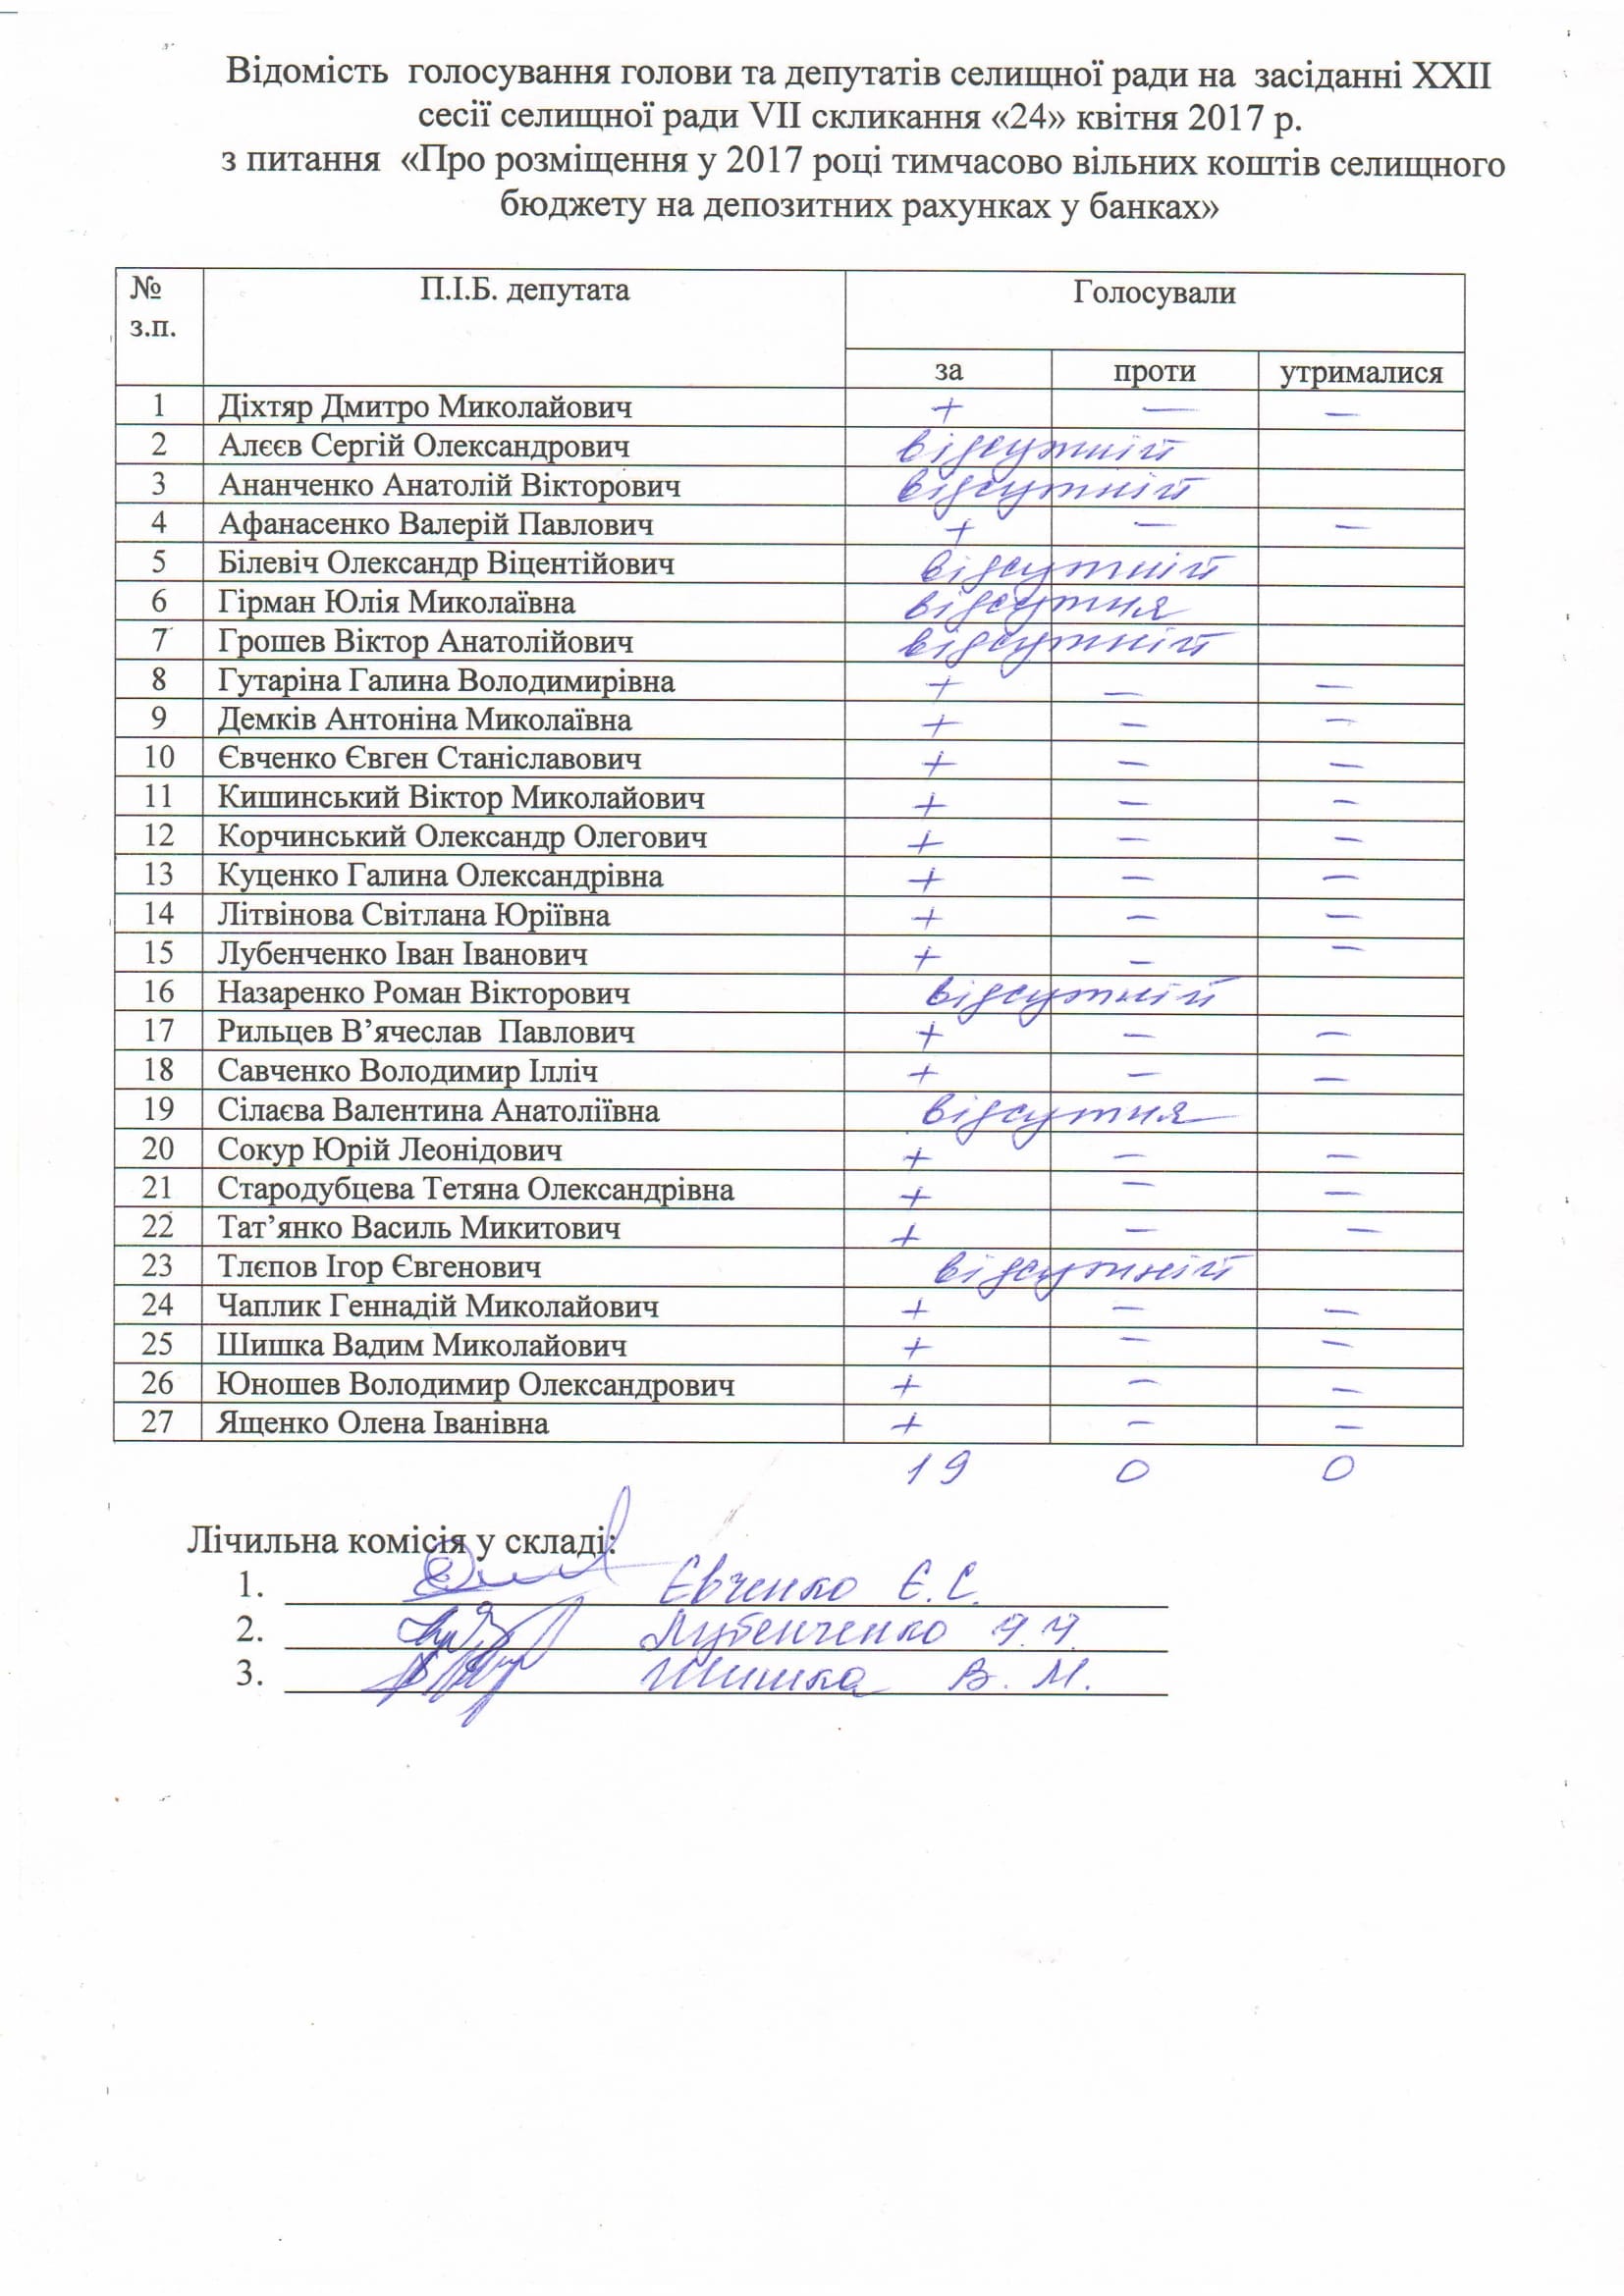 Відомість голосування голови та депутатів селищної ради на засіданні XXII
сесії селищної ради VII скликання «24» квітня 2017 р.
з питання «Про розміщення у 2017 році тимчасово вільних коштів селищного
бюджету на депозитних рахунках у банках»
№ з.п. П.І.Б. депутата Голосували
за проти утрималися
1 Діхтяр Дмитро Миколайович + — —
2 Алєєв Сергій Олександрович відсутній
3 Ананченко Анатолій Вікторович відсутній
4 Афанасенко Валерій Павлович + — —
5 Білевіч Олександр Віцентійович відсутній
6 Гірман Юлія Миколаївна відсутня
7 Грошев Віктор Анатолійович відсутній
8 Гутаріна Галина Володимирівна + — —
9 Демків Антоніна Миколаївна + — —
10 Євченко Євген Станіславович + — —
11 Кишинський Віктор Миколайович + — —
12 Корчинський Олександр Олегович + — —
13 Куценко Галина Олександрівна + — —
14 Літвінова Світлана Юріївна + — —
15 Лубенченко Іван Іванович + — —
16 Назаренко Роман Вікторович відсутній
17 Рильцев В’ячеслав Павлович + — —
18 Савченко Володимир Ілліч + — —
19 Сілаєва Валентина Анатоліївна відсутня
20 Сокур Юрій Леонідович + — —
21 Стародубцева Тетяна Олександрівна + — —
22 Тат’янко Василь Микитович + — —
23 Тлєпов Ігор Євгенович відсутній
24 Чаплик Геннадій Миколайович + — —
25 Шишка Вадим Миколайович + — —
26 Юношев Володимир Олександрович + — —
27 Ященко Олена Іванівна + — —
19 0 0
Лічильна комісія у складі:
1. Євченко Є.С.
2. Лубенченко
3. Шишка В.М.